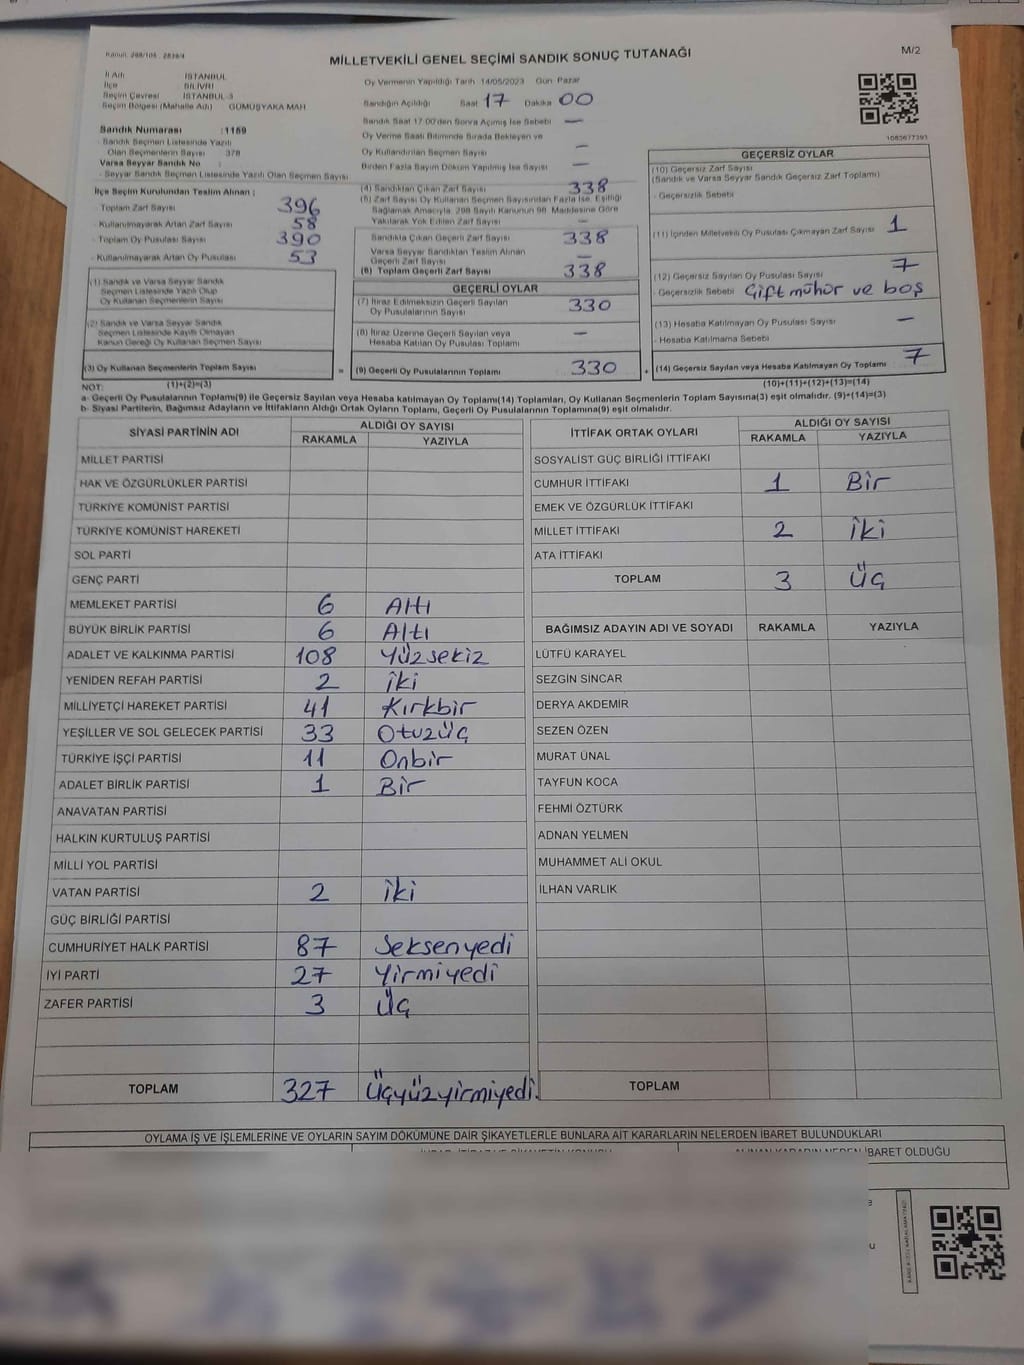 Kanun: 298/105 - 2839/4
MİLLETVEKİLİ GENEL SEÇİMİ SANDIK SONUÇ TUTANAĞI
M/2
İl Adı : İSTANBUL
İlçe : SİLİVRİ
Seçim Çevresi : İSTANBUL-3
Seçim Bölgesi (Mahalle Adı) : GÜMÜŞYAKA MAH
Sandık Numarası :1159
- Sandık Seçmen Listesinde Yazılı
Olan Seçmenlerin Sayısı : 378
Varsa Seyyar Sandık No :
- Seyyar Sandık Seçmen Listesinde Yazılı Olan Seçmen Sayısı
İlçe Seçim Kurulundan Teslim Alınan ;
- Toplam Zarf Sayısı 396
- Kullanılmayarak Artan Zarf Sayısı 58
- Toplam Oy Pusulası Sayısı 390
- Kullanılmayarak Artan Oy Pusulası 53
(1) Sandık ve Varsa Seyyar Sandık
Seçmen Listesinde Yazılı Olup
Oy Kullanan Seçmenlerin Sayısı
(2) Sandık ve Varsa Seyyar Sandık
Seçmen Listesinde Kayıtlı Olmayan
Kanun Gereği Oy Kullanan Seçmen Sayısı
(3) Oy Kullanan Seçmenlerin Toplam Sayısı
Oy Vermenin Yapıldığı Tarih 14/05/2023 Gün Pazar
Sandığın Açıldığı Saat 17 Dakika 00
Sandık Saat 17:00'den Sonra Açılmış İse Sebebi —
Oy Verme Saati Bitiminde Sırada Bekleyen ve
Oy Kullandırılan Seçmen Sayısı —
Birden Fazla Sayım Döküm Yapılmış İse Sayısı —
(4) Sandıktan Çıkan Zarf Sayısı 338
(5) Zarf Sayısı Oy Kullanan Seçmen Sayısından Fazla İse, Eşitliği
Sağlamak Amacıyla, 298 Sayılı Kanunun 98. Maddesine Göre
Yakılarak Yok Edilen Zarf Sayısı —
Sandıkta Çıkan Geçerli Zarf Sayısı 338
Varsa Seyyar Sandıktan Teslim Alınan
Geçerli Zarf Sayısı —
(6) Toplam Geçerli Zarf Sayısı 338
GEÇERLİ OYLAR
(7) İtiraz Edilmeksizin Geçerli Sayılan
Oy Pusulalarının Sayısı 330
(8) İtiraz Üzerine Geçerli Sayılan veya
Hesaba Katılan Oy Pusulası Toplamı —
= (9) Geçerli Oy Pusulalarının Toplamı 330
1083677393
GEÇERSİZ OYLAR
(10) Geçersiz Zarf Sayısı
(Sandık ve Varsa Seyyar Sandık Geçersiz Zarf Toplamı)
- Geçersizlik Sebebi
(11) İçinden Milletvekili Oy Pusulası Çıkmayan Zarf Sayısı 1
(12) Geçersiz Sayılan Oy Pusulası Sayısı 7
- Geçersizlik Sebebi Çift mühür ve boş
(13) Hesaba Katılmayan Oy Pusulası Sayısı —
- Hesaba Katılmama Sebebi
+ (14) Geçersiz Sayılan veya Hesaba Katılmayan Oy Toplamı 7
NOT: (1)+(2)=(3) (10)+(11)+(12)+(13)=(14)
a- Geçerli Oy Pusulalarının Toplamı(9) ile Geçersiz Sayılan veya Hesaba katılmayan Oy Toplamı(14) Toplamları, Oy Kullanan Seçmenlerin Toplam Sayısına(3) eşit olmalıdır. (9)+(14)=(3)
b- Siyasi Partilerin, Bağımsız Adayların ve İttifakların Aldığı Ortak Oyların Toplamı, Geçerli Oy Pusulalarının Toplamına(9) eşit olmalıdır.
SİYASİ PARTİNİN ADI ALDIĞI OY SAYISI
RAKAMLA YAZIYLA
MİLLET PARTİSİ
HAK VE ÖZGÜRLÜKLER PARTİSİ
TÜRKİYE KOMÜNİST PARTİSİ
TÜRKİYE KOMÜNİST HAREKETİ
SOL PARTİ
GENÇ PARTİ
MEMLEKET PARTİSİ 6 Altı
BÜYÜK BİRLİK PARTİSİ 6 Altı
ADALET VE KALKINMA PARTİSİ 108 Yüzsekiz
YENİDEN REFAH PARTİSİ 2 İki
MİLLİYETÇİ HAREKET PARTİSİ 41 Kırkbir
YEŞİLLER VE SOL GELECEK PARTİSİ 33 Otuzüç
TÜRKİYE İŞÇİ PARTİSİ 11 Onbir
ADALET BİRLİK PARTİSİ 1 Bir
ANAVATAN PARTİSİ
HALKIN KURTULUŞ PARTİSİ
MİLLİ YOL PARTİSİ
VATAN PARTİSİ 2 İki
GÜÇ BİRLİĞİ PARTİSİ
CUMHURİYET HALK PARTİSİ 87 Seksenyedi
İYİ PARTİ 27 Yirmiyedi
ZAFER PARTİSİ 3 Üç
TOPLAM 327 Üçyüzyirmiyedi.
İTTİFAK ORTAK OYLARI ALDIĞI OY SAYISI
RAKAMLA YAZIYLA
SOSYALİST GÜÇ BİRLİĞİ İTTİFAKI
CUMHUR İTTİFAKI 1 Bir
EMEK VE ÖZGÜRLÜK İTTİFAKI
MİLLET İTTİFAKI 2 İki
ATA İTTİFAKI
TOPLAM 3 Üç
BAĞIMSIZ ADAYIN ADI VE SOYADI RAKAMLA YAZIYLA
LÜTFÜ KARAYEL
SEZGİN SİNCAR
DERYA AKDEMİR
SEZEN ÖZEN
MURAT ÜNAL
TAYFUN KOCA
FEHMİ ÖZTÜRK
ADNAN YELMEN
MUHAMMET ALİ OKUL
İLHAN VARLIK
TOPLAM
OYLAMA İŞ VE İŞLEMLERİNE VE OYLARIN SAYIM DÖKÜMÜNE DAİR ŞİKAYETLERLE BUNLARA AİT KARARLARIN NELERDEN İBARET BULUNDUKLARI
İBARET OLDUĞU